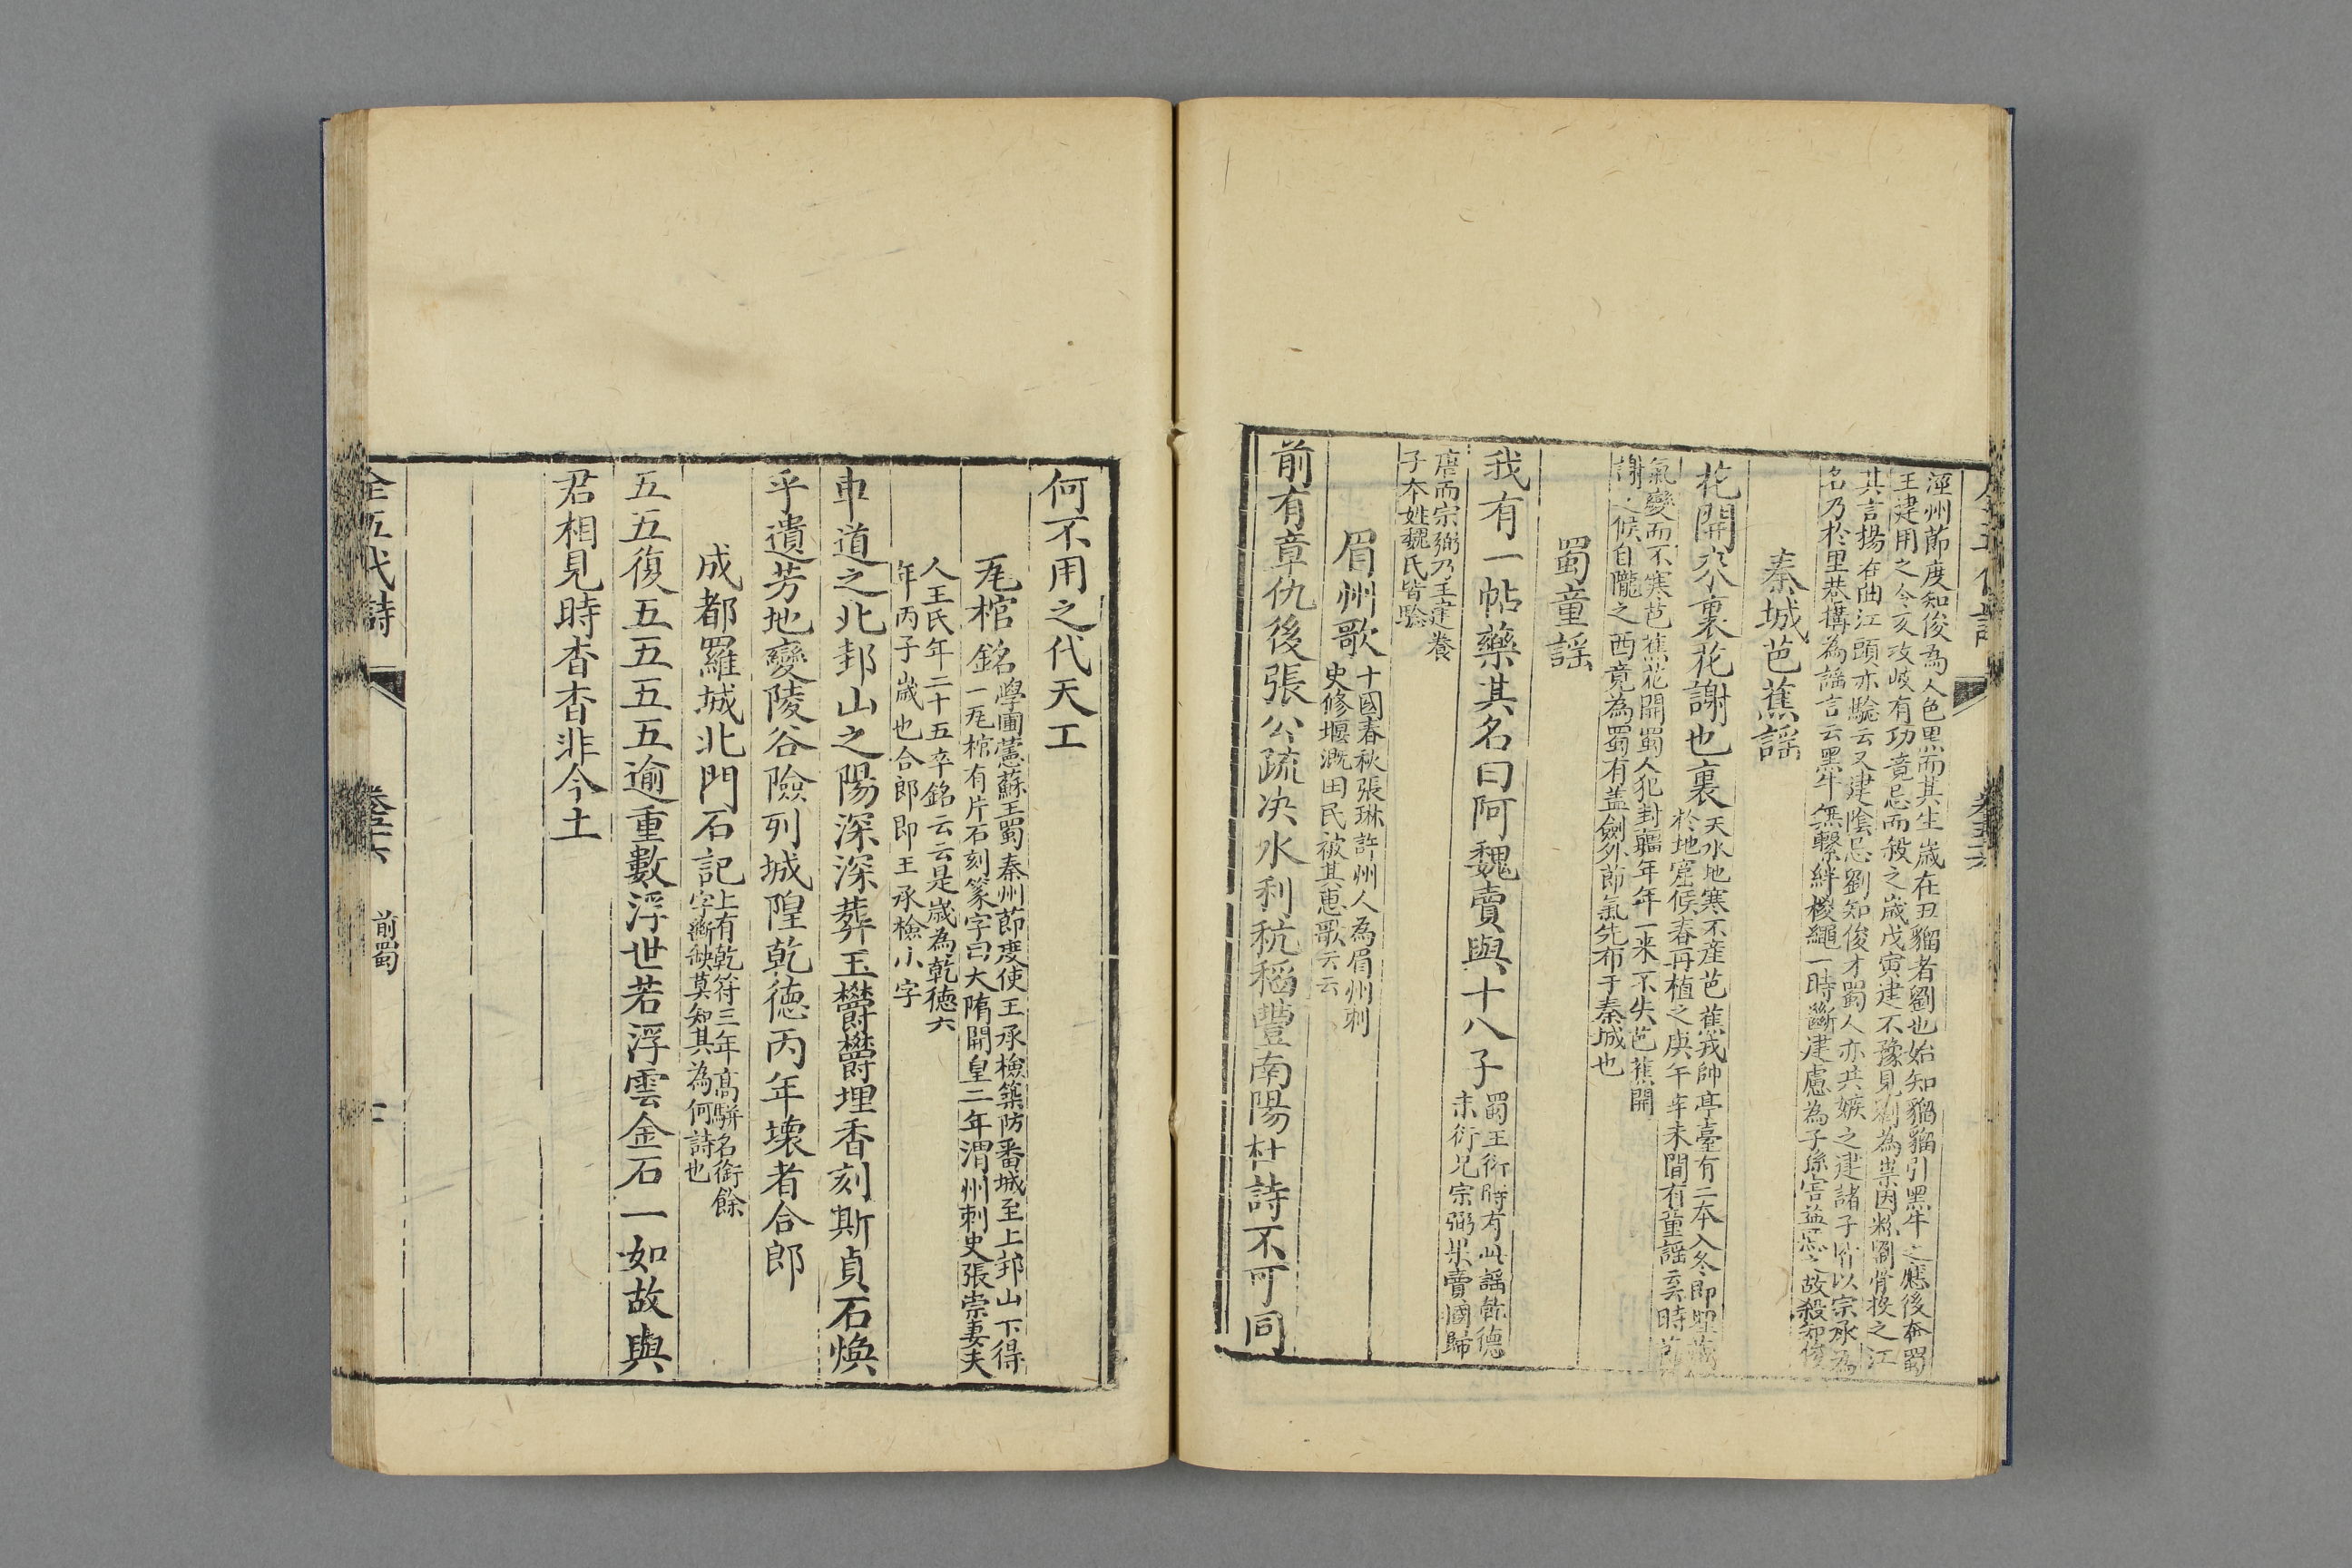 涇州節度知俊為人色黑而其生歲在丑騮者劉也始知騮騮引黑牛之應後奔蜀
王建用之令亥攻岐有功竟忌而殺之歲戊寅建不豫見劉為祟因粉劉骨投之江
其言揚在曲江頭亦驗云又建陰忌劉知俊才蜀人亦共嫉之建諸子皆以宗承為
名乃於里巷搆為謡言云黑牛無繫絆椶繩一時斷建慮為子孫害益忌之故殺知俊
秦城芭蕉謡
花開來裏花謝也裏
天水地寒不產芭蕉戎帥亭臺有二本入冬即
於地窟候春再植之庚午辛未間有童謡云時
氣變而不寒芭蕉花開蜀人犯封疆年年一來不失芭蕉開
謝之候自隴之西竟為蜀有盖劍外節氣先布于秦城也
蜀童謡
我有一帖藥其名曰阿魏賣與十八子
蜀王衍時有此謡乾德
末衍兄宗弼果賣國歸
唐而宗弼乃王建養
子本姓魏氏皆驗
眉州歌
十國春秋張琳許州人為眉州刺
史修堰溉田民被其惠歌云云
前有章仇後張公疏决水利秔稻豐南陽杜詩不可同
何不用之代天工
𤬪棺銘
學圃蕙蘇王蜀秦州節度使王承檢築防番城至上邽山下得
一𤬪棺有片石刻篆字曰大隋開皇二年渭州刺史張崇妻夫
人王氏年二十五卒銘云云是歲為乾德六
年丙子歲也合郎即王承檢小字
車道之北邽山之陽深深葬玉欝欝埋香刻斯貞石煥
乎遺芳地變陵谷險列城隍乾德丙年壊者合郎
成都羅城北門石記
上有乾符三年髙駢名銜餘
字斷缺莫知其為何詩也
五五復五五五五逾重數浮世若浮雲金石一如故與
君相見時杳杳非今土
全五代詩
前蜀